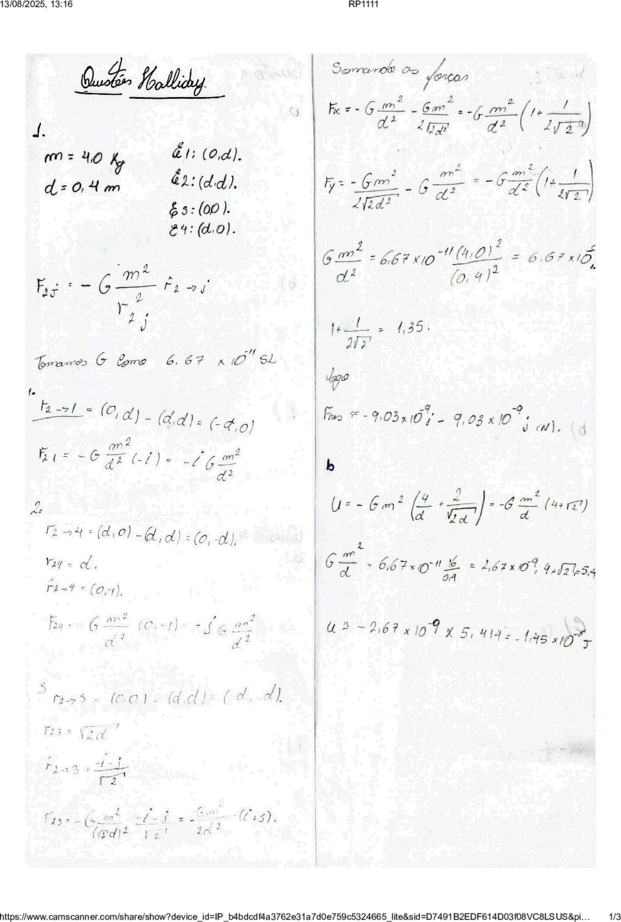 13/08/2025, 13:16
RP1111
Questões Halliday.
1.
m = 4.0 Kg
d = 0,4 m
E1: (0,d).
E2: (d,d).
E3: (0,0).
E4: (d,0).
F₂j = - G m²/r²₂j r̂₂→j
Tomamos G como 6,67 x 10⁻¹¹ SI
1.
r₂→1 = (0,d) - (d,d) = (-d,0)
F₂1 = - G m²/d² (-i) = -i G m²/d²
2.
r₂→4 = (d,0) - (d,d) = (0,-d).
r₂4 = d.
r̂₂→4 = (0,-1).
F₂4 = - G m²/d² (0,-1) = -j G m²/d²
3
r₂→3 = (0,0) - (d,d) = (-d,-d).
r₂3 = √2d
r̂₂→3 = -i-j/√2
F₂3 = - G m²/(√2d)² -i-j/√2 = - Gm²/2d² (i+j).
Somando as forças
Fx = - G m²/d² - Gm²/2√2d² = -G m²/d² (1+ 1/2√2)
Fy = - Gm²/2√2d² - G m²/d² = -G m²/d² (1+ 1/2√2)
G m²/d² = 6,67 x 10⁻¹¹ (4,0)²/(0,4)² = 6,67 x 10
1+ 1/2√2 = 1,35.
logo
Fres ≈ -9,03x10⁻⁹ i - 9,03 x 10⁻⁹ j (N).
b
U = - G m² (4/d + 2/√2d) = -G m²/d (4+√2)
G m²/d = 6,67 x 10⁻¹¹ 16/0,4 = 2,67 x 10⁻⁹, 4+√2 = 5,4
U = -2,67 x 10⁻⁹ x 5,414 = -1,45 x 10⁻⁸ J
https://www.camscanner.com/share/show?device_id=IP_b4bdcdf4a3762e31a7d0e759c5324665_lite&sid=D7491B2EDF614D03f08VC8LSUS&pi…
1/3